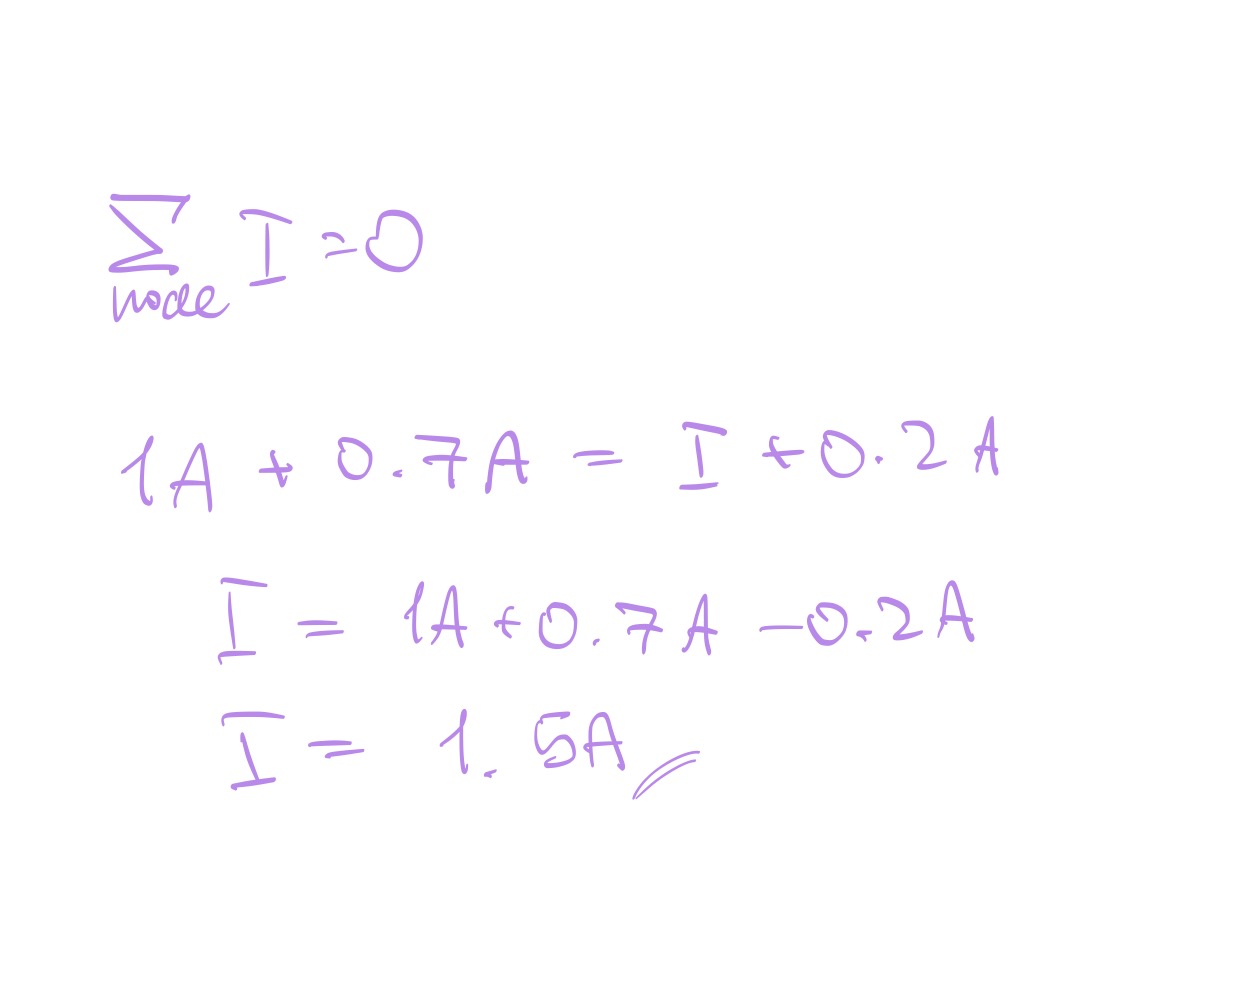 ∑ I = 0
node
1A + 0.7A = I + 0.2A
I = 1A + 0.7A - 0.2A
I = 1.5A